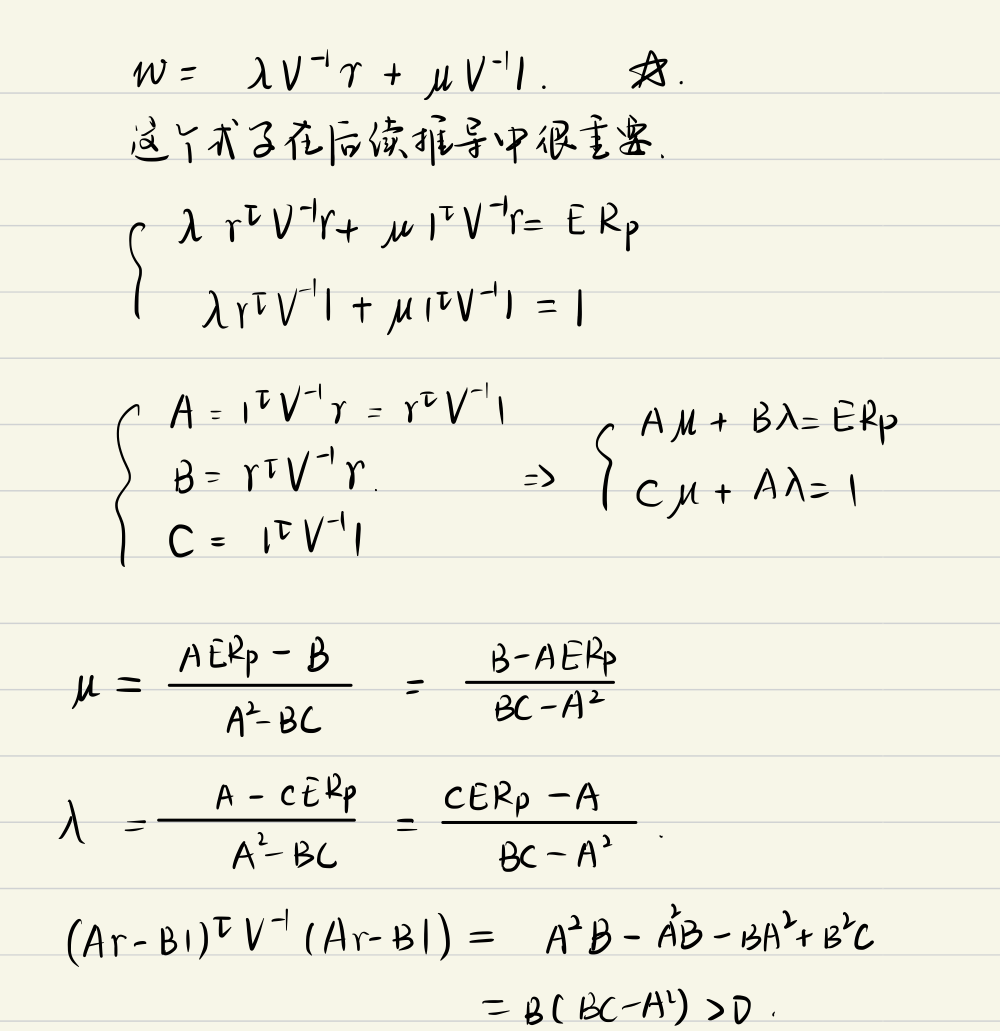 w = λV⁻¹r + μV⁻¹1. ☆.
这个式子在后续推导中很重要.
{ λ rᵀV⁻¹r + μ 1ᵀV⁻¹r = ERp
λrᵀV⁻¹1 + μ1ᵀV⁻¹1 = 1
{ A = 1ᵀV⁻¹r = rᵀV⁻¹1
B = rᵀV⁻¹r.
C = 1ᵀV⁻¹1
⇒ { Aμ + Bλ = ERp
Cμ + Aλ = 1
μ = (AERp − B)/(A² − BC) = (B − AERp)/(BC − A²)
λ = (A − CERp)/(A² − BC) = (CERp − A)/(BC − A²).
(Ar − B1)ᵀV⁻¹(Ar − B1) = A²B − A²B − BA² + B²C
= B(BC − A²) > 0.